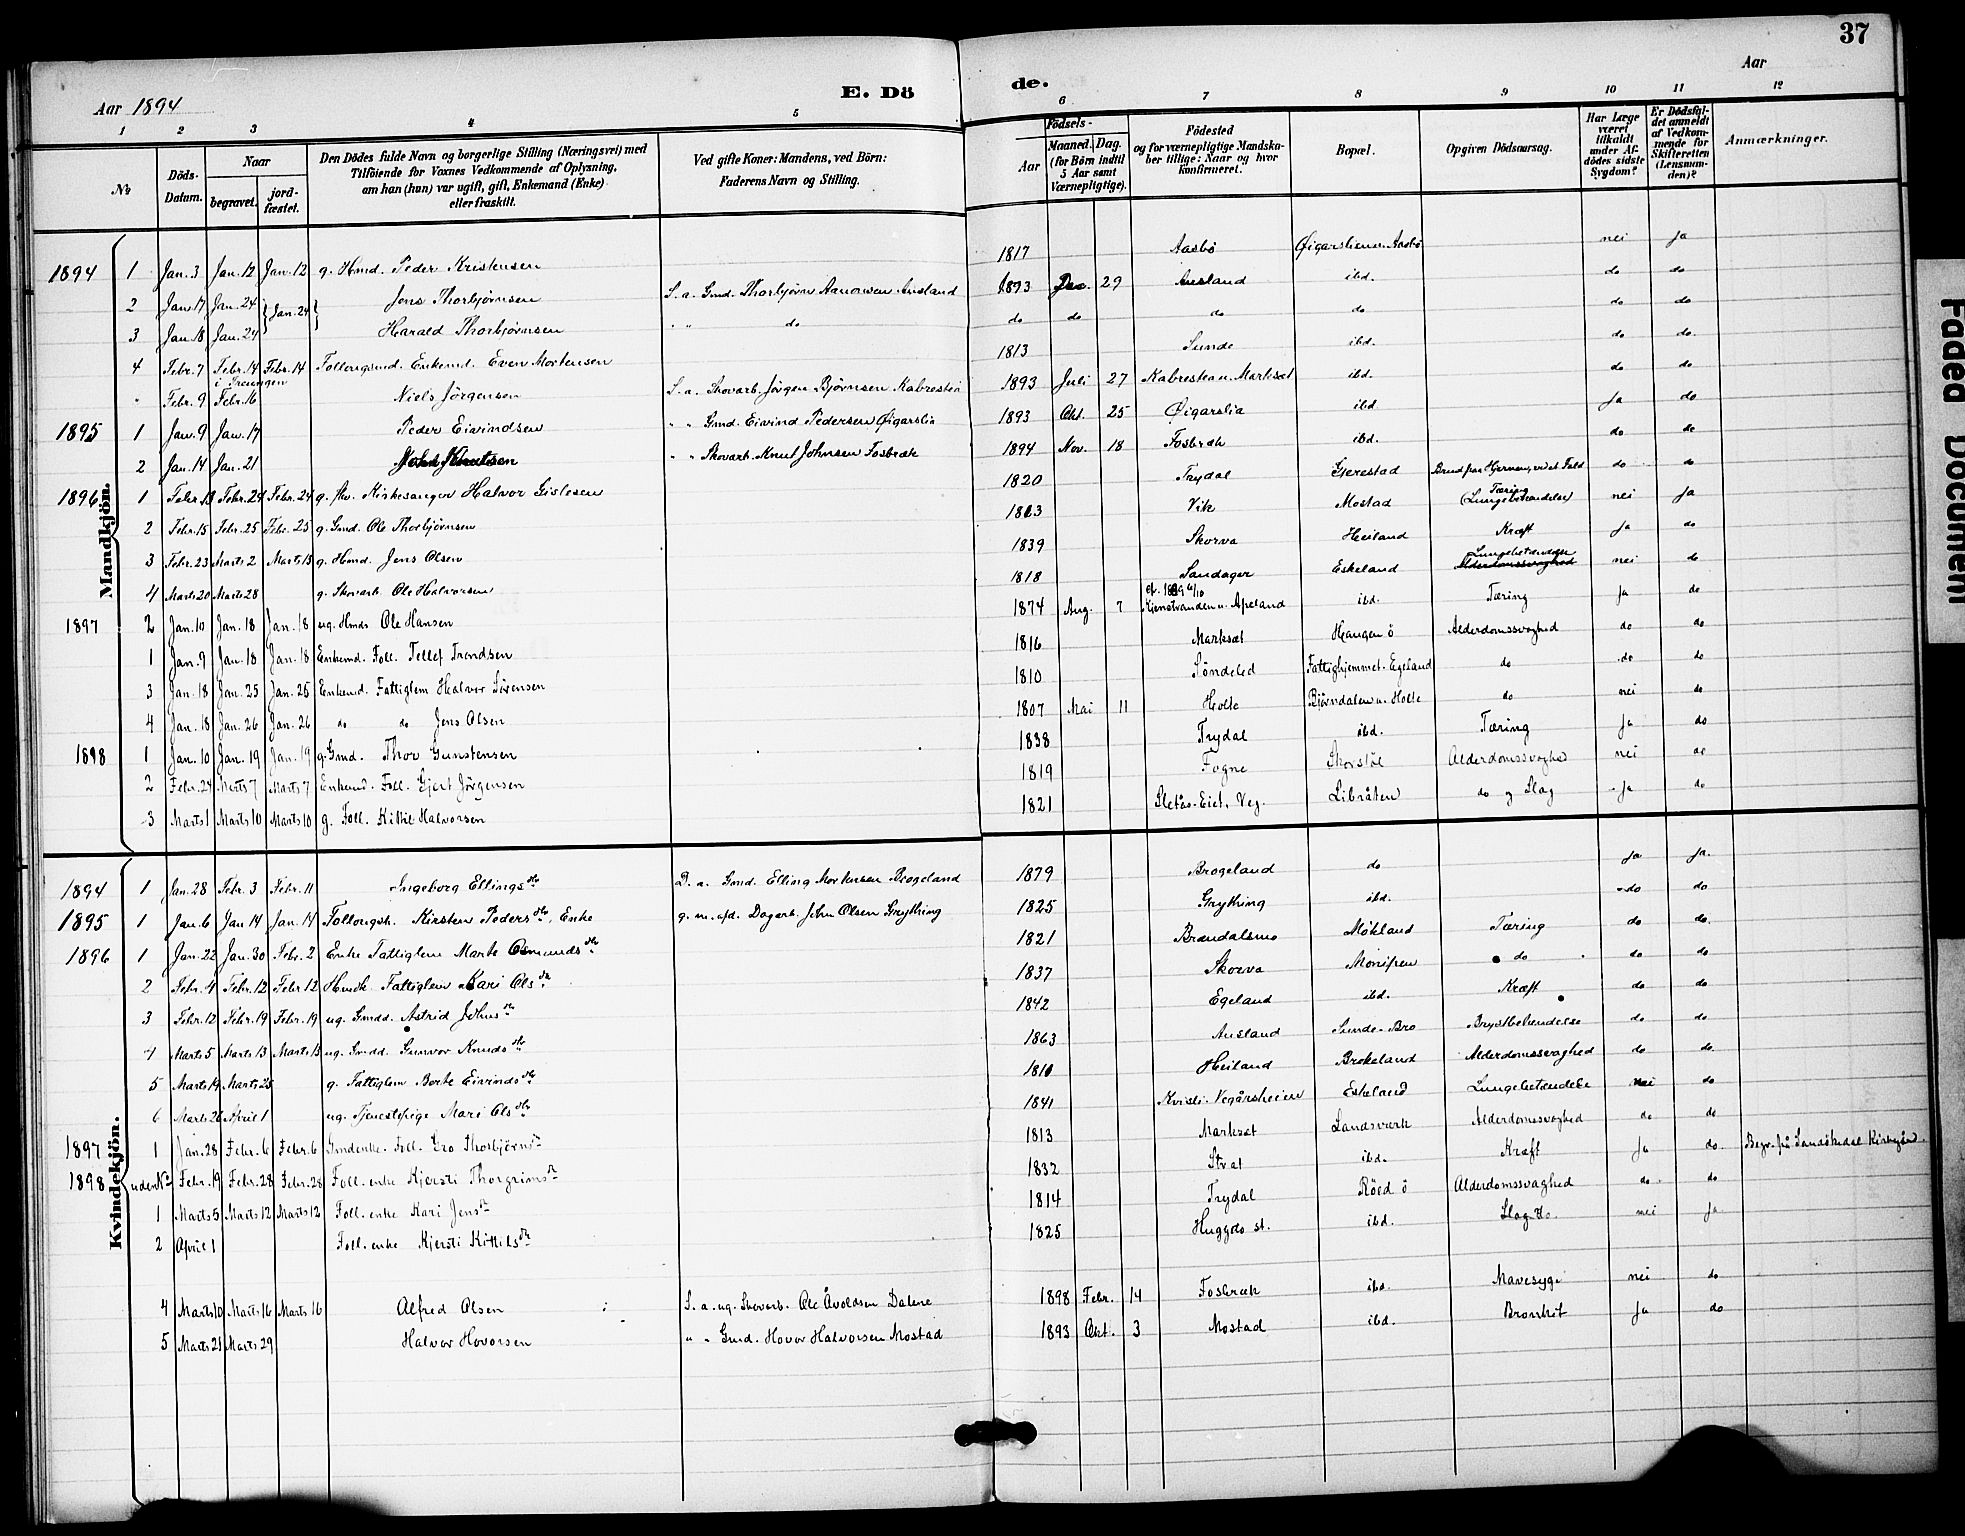 37
Aar 1894
E. Dö
de.
Aar
1 2 3 4 5 6 7 8 9 10 11 12
No
Döds-Datum.
Naar
begravet.
jord-fæstet.
Den Dödes fulde Navn og borgerlige Stilling (Næringsvei) med Tilföiende for Voxnes Vedkommende af Oplysning, om han (hun) var ugift, gift, Enkemand (Enke) eller fraskilt.
Ved gifte Koner: Mandens, ved Börn: Faderens Navn og Stilling.
Födsels-
Aar
Maaned. Dag. (for Börn indtil 5 Aar samt Værnepligtige).
Födested og for værnepligtige Mandskaber tillige: Naar og hvor konfirmeret.
Bopæl.
Opgiven Dödsaarsag.
Har Læge været tilkaldt under Afdödes sidste Sygdom?
Er Dödsfaldet anmeldt af Vedkommende for Skifteretten (Lensmanden)?
Anmærkninger.
Mandkjön.
1894 1 Jan. 3 Jan. 12 Jan. 12 g. Hmd. Peder Kristensen 1817 Aasbö Øigarslien u. Aasbö nei ja
2 Jan. 17 Jan. 24 Jan. 24 Jens Thorbjörnsen S. a. Gmd. Thorbjörn Aanonsen Ausland 1893 Dec. 29 Ausland ibd. do do
3 Jan. 18 Jan. 24 Harald Thorbjörnsen " " do do do do do do do
4 Febr. 7 Febr. 14 Febr. 14 Follougsmd. Enkemd. Even Mortensen 1813 Sunde ibd. do do
" Febr. 9 Febr. 16 Niels Jörgensen S. a. Skovarb. Jörgen Björnsen Kabrestua 1893 Juli 27 Kabrestua u. Marksæt ibd. do do
1895 1 Jan. 9 Jan. 17 Peder Eivindsen " " Gmd. Eivind Pedersen Øigarslia 1893 Okt. 25 Øigarslia ibd. ja do
2 Jan. 14 Jan. 21 John Knutsen " " Skovarb. Knut Johnsen Fosbræk 1894 Nov. 18 Fosbræk ibd. do do
1896 1 Febr. 13 Febr. 24 Febr. 24 g. Kirkesanger Halvor Gislesen 1820 Trydal Gjerestad do do
2 Febr. 15 Febr. 25 Febr. 25 g. Gmd. Ole Thorbjörnsen 1813 Vik Mostad Tæring (Lungebetændelse) nei ja
3 Febr. 23 Marts 2 Marts 15 g. Hmd. Jens Olsen 1839 Skorva Heiland Kræft ja do
4 Marts 20 Marts 28 g. Skovarb. Ole Halvorsen 1818 Sandager Eskeland Lungebetændelse Alderdomssvaghed nei do
1897 2 Jan. 10 Jan. 18 Jan. 18 ug. Hmds Ole Hansen 1874 Aug. 7 cf. 1889 6/10 Kjenstranden u. Apeland ibd. Tæring ja do
1 Jan. 9 Jan. 18 Jan. 18 Enkemd. Foll. Tellef Trondsen 1816 Marksæt Haugen ö Alderdomssvaghed do do
3 Jan. 18 Jan. 25 Jan. 25 Enkemd. Fattiglem Halvor Sörensen 1810 Söndeled Fattighjemmet. Egeland do do do
4 Jan. 18 Jan. 26 Jan. 26 do do Jens Olsen 1807 Mai 11 Holte Björndalen u. Holte do nei do
1898 1 Jan. 10 Jan. 19 Jan. 19 g. Gmd. Thor Gunstensen 1838 Trydal ibd. Tæring ja do
2 Febr. 24 Marts 7 Marts 7 Enkemd. Foll. Gjert Jörgensen 1819 Fogne Skorstöl Alderdomssvaghed nei do
3 Marts 1 Marts 10 Marts 10 g. Foll. Kittil Halvorsen 1821 Sletås-Eiet, Veg. Libråten do og Slag ja do
Kvindekjön.
1894 1 Jan. 28 Febr. 3 Febr. 11 Ingeborg Ellingsdtr D. a. Gmd. Elling Mortensen Brogeland 1879 Brogeland do ja ja.
1895 1 Jan. 6 Jan 14 Jan. 14 Follougsk. Kirsten Pedersdtr, Enke g. m. afd. Dagarb. John Olsen Grytking 1825 Grytking ibd. do do
1896 1 Jan. 22 Jan. 30 Febr. 2 Enke Fattiglem Marte Osmundsdtr 1821 Brændalsmo Mökland Tæring do do.
2 Febr. 4 Febr. 12 Febr 12 Hmdk. Fattiglem Kari Olsdtr 1837 Skorva do do do
3 Febr. 12 Febr. 19 Febr. 19 ug. Gmdd. Astrid Johnsdtr 1842 Egeland ibd. Kræft do do
4 Marts 5 Marts 13 Marts 15 ug. Gmdd. Gunvor Knudsdtr 1863 Ausland Sunde-Bro Brystbetændelse do do
5 Marts 19 Marts 25 g. Fattiglem Berte Eivindsdtr 1810 Heiland Brokeland Alderdomssvaghed do do.
6 Marts 26 April 1 ug. Tjenestepige Mari Olsdtr 1841 Kvisli. Vegårsheien Eskeland Lungebetændelse nei do
1897 1 Jan. 28 Febr. 6 Febr. 6 Gmdenke. Foll. Gro Thorbjörnsdtr 1813 Marksæt Landsværk Alderdomssvaghed do do
1898 uden No Febr. 19 Febr. 28 Febr. 28 Foll. enke Kjersti Thorgrimsdtr 1832 Strat ibd. Kræft ja do. Begr. på Sandökedal Kirkegård.
1 Marts 5 Marts 12 Marts 12 Foll. enke Kari Jensdtr 1814 Trydal Röed ö Alderdomssvaghed do do
2 April 1 Foll. enke Kjersti Kittilsdtr 1825 ibd. Slag do. nei ja.
4 Marts 10 Marts 16 Marts 16 Alfred Olsen S. a. ug. Skovarb. Ole Åvoldsen Dalene 1898 Febr. 14 Fosbræk ibd. Mavesyge nei do
5 Marts 21 Marts 29 Halvor Hovorsen " " Gmd. Hovor Halvorsen Mostad 1893 Okt. 3 Mostad ibd. Bronkit ja do
Faded Document